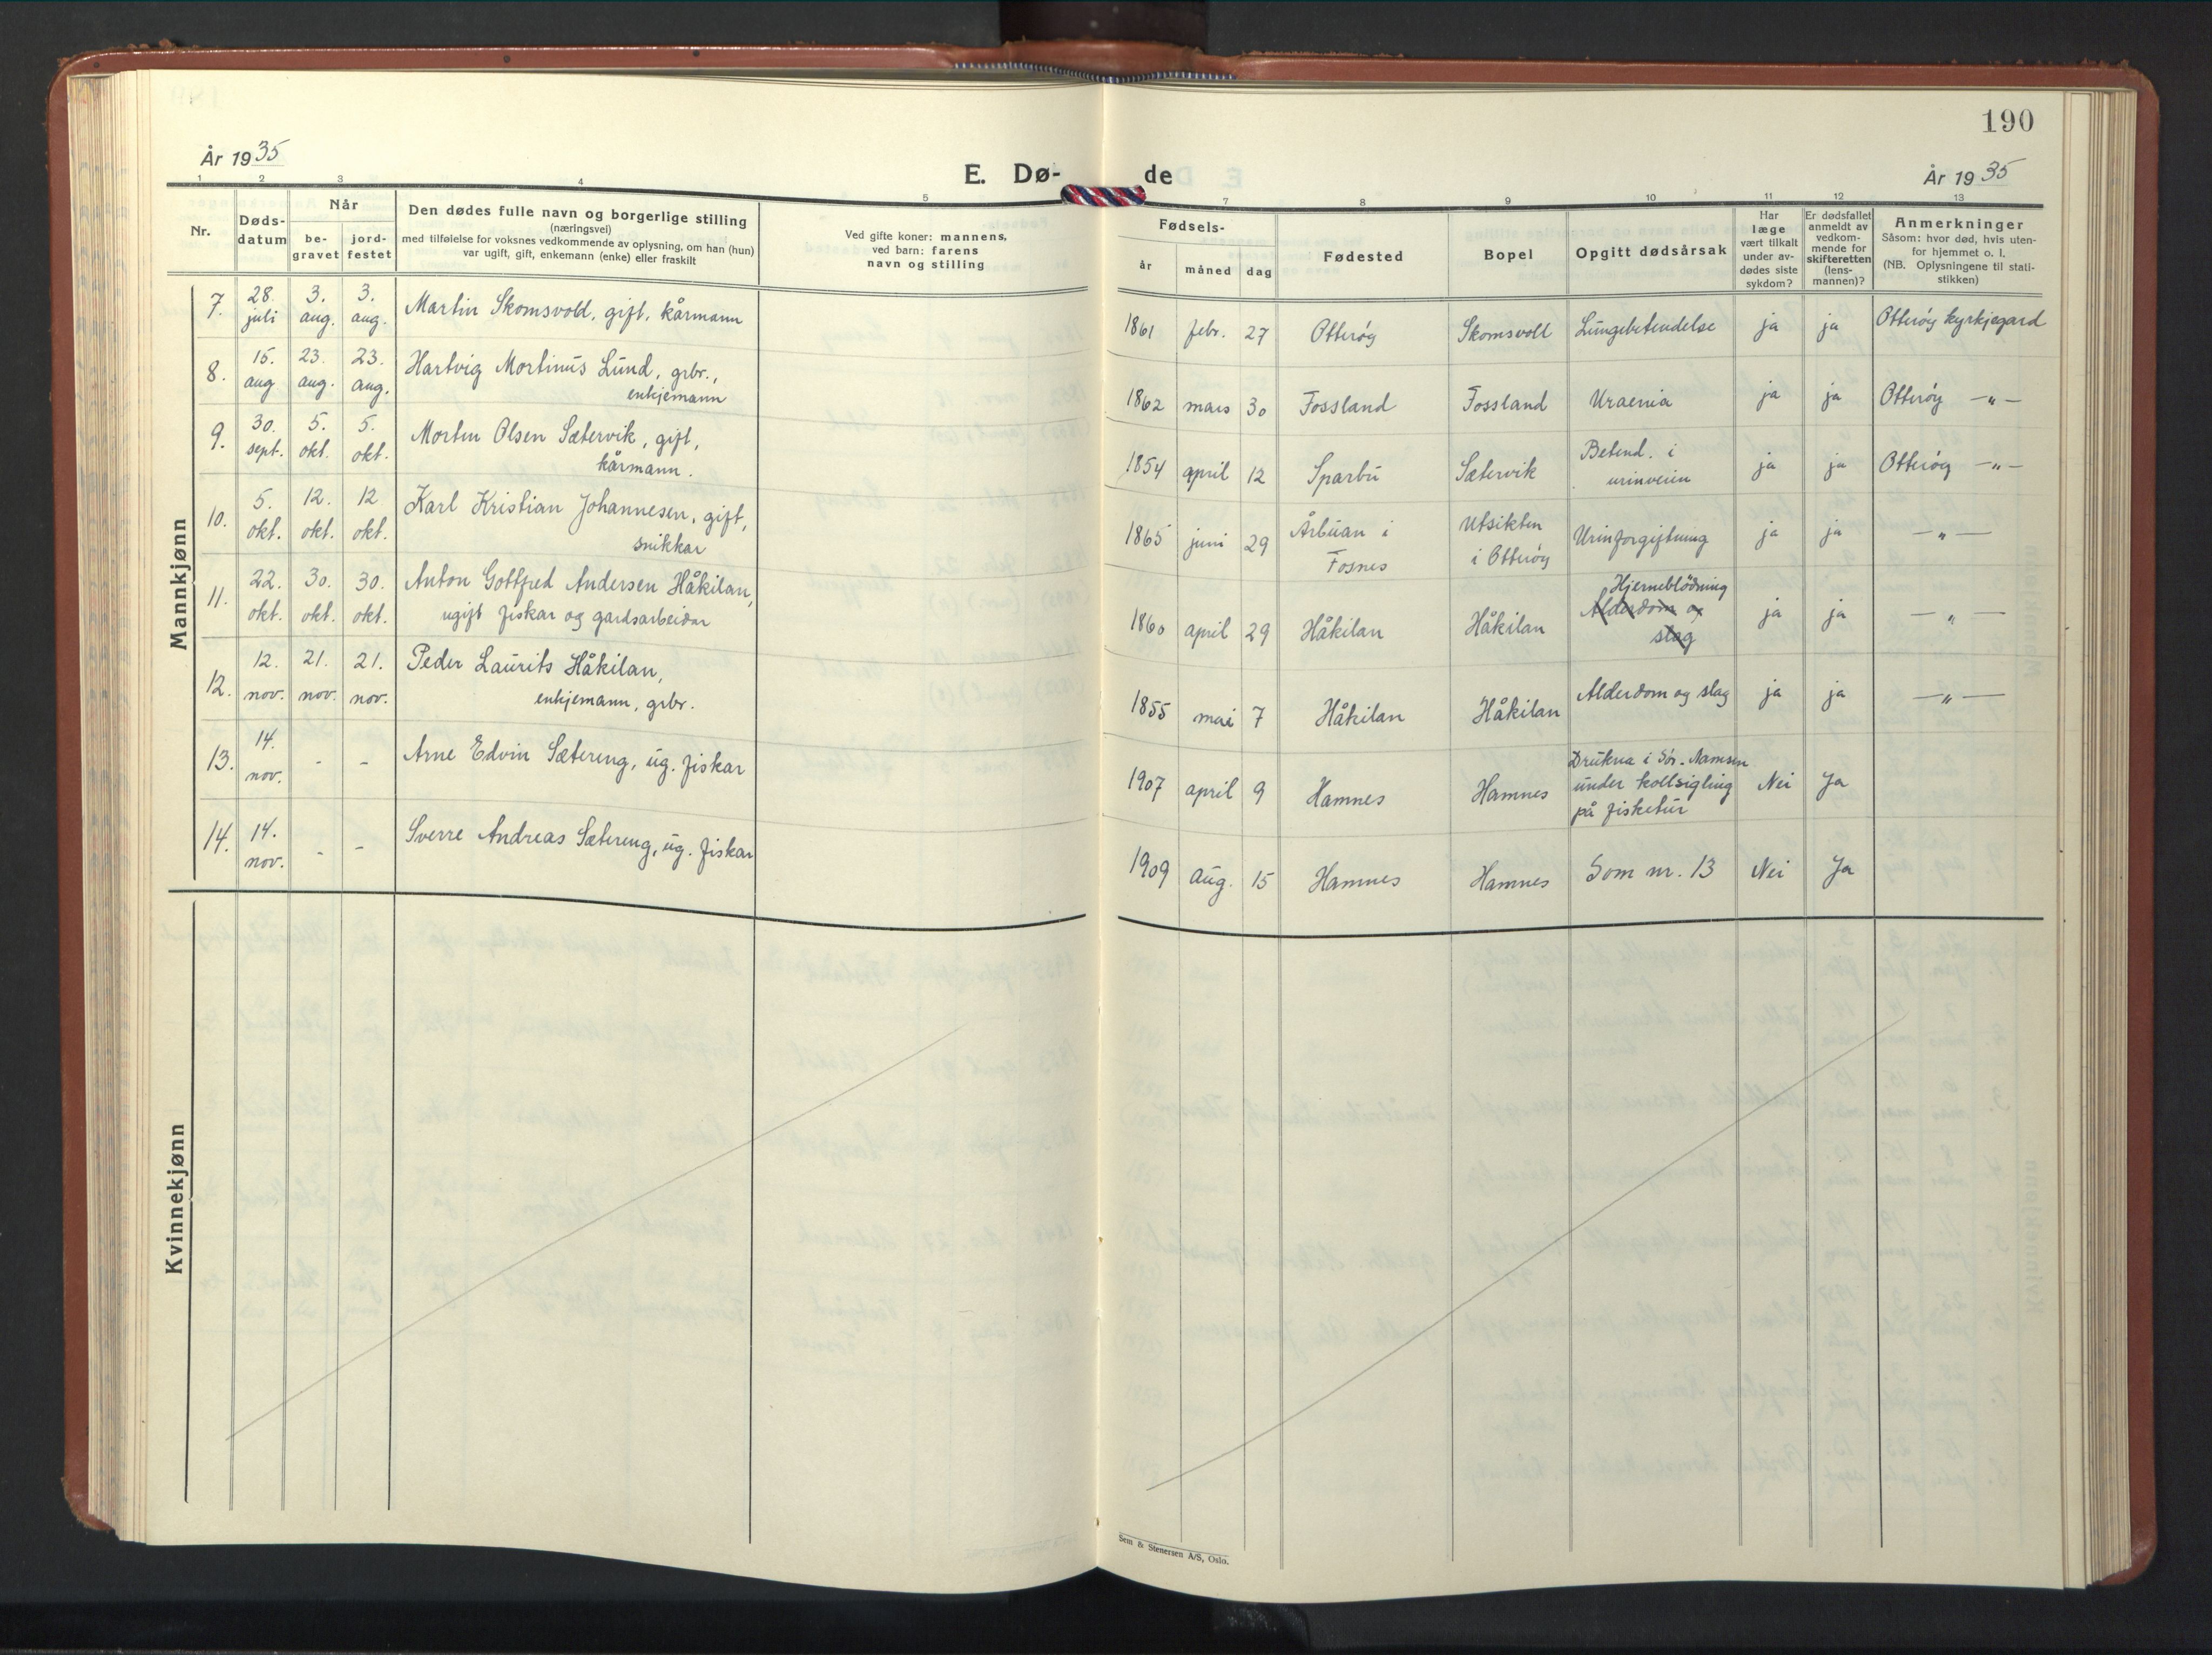 190
År 1935
E. Dø-
de
År 1935
1 2 3 4 5 7 8 9 10 11 12 13
Nr.
Døds-
datum
Når
be-
gravet
jord-
festet
Den dødes fulle navn og borgerlige stilling
(næringsvei)
med tilføielse for voksnes vedkommende av oplysning, om han (hun)
var ugift, gift, enkemann (enke) eller fraskilt
Ved gifte koner: mannens,
ved barn: farens
navn og stilling
Fødsels-
år måned dag
Fødested
Bopel
Opgitt dødsårsak
Har
læge
vært tilkalt
under av-
dødes siste
sykdom?
Er dødsfallet
anmeldt av
vedkom-
mende for
skifteretten
(lens-
mannen)?
Anmerkninger
Såsom: hvor død, hvis uten-
for hjemmet o. l.
(NB. Oplysningene til stati-
stikken)
Mannkjønn
7. 28. juli 3. aug. 3. aug. Martin Skomsvold, gift, kårmann 1861 febr. 27 Otterøy Skomsvoll Lungebetendelse ja ja Otterøy kyrkjegard
8. 15. aug 23. aug. 23. aug. Hartvig Mortinus Lund, grbr.,
enkjemann 1862 mars 30 Fossland Fossland Uraemia ja ja Otterøy -"-
9. 30. sept. 5. okt. 5. okt. Morten Olsen Sætervik, gift,
kårmann. 1854 april 12 Sparbu Sætervik Betend. i
urinveien ja ja Otterøy -"-
10. 5. okt. 12. okt. 12 okt. Karl Kristian Johannesen, gift,
snikkar 1865 juni 29 Årbuan i
Fosnes Utsikten
i Otterøy Urinforgiftning ja ja -"-
11. 22. okt. 30. okt. 30. okt. Anton Gottfred Andersen Håkilan,
ugift fiskar og gardsarbeidar 1860 april 29 Håkilan Håkilan Hjerneblödning
Alderdom og
slag ja ja -"-
12. 12. nov. 21. nov. 21. nov. Peder Laurits Håkilan,
enkjemann, grbr. 1855 mai 7 Håkilan Håkilan Alderdom og slag ja ja -"-
13. 14. nov. - - Arne Edvin Sætereng, ug. fiskar 1907 april 9 Hamnes Hamnes Drukna i Sør-Namsen
under kollsigling
på fisketur Nei Ja
14. 14. nov. - - Sverre Andreas Sætereng, ug. fiskar 1909 aug. 15 Hamnes Hamnes Som nr. 13 Nei Ja
Kvinnekjønn
Sem & Stenersen A/S, Oslo.